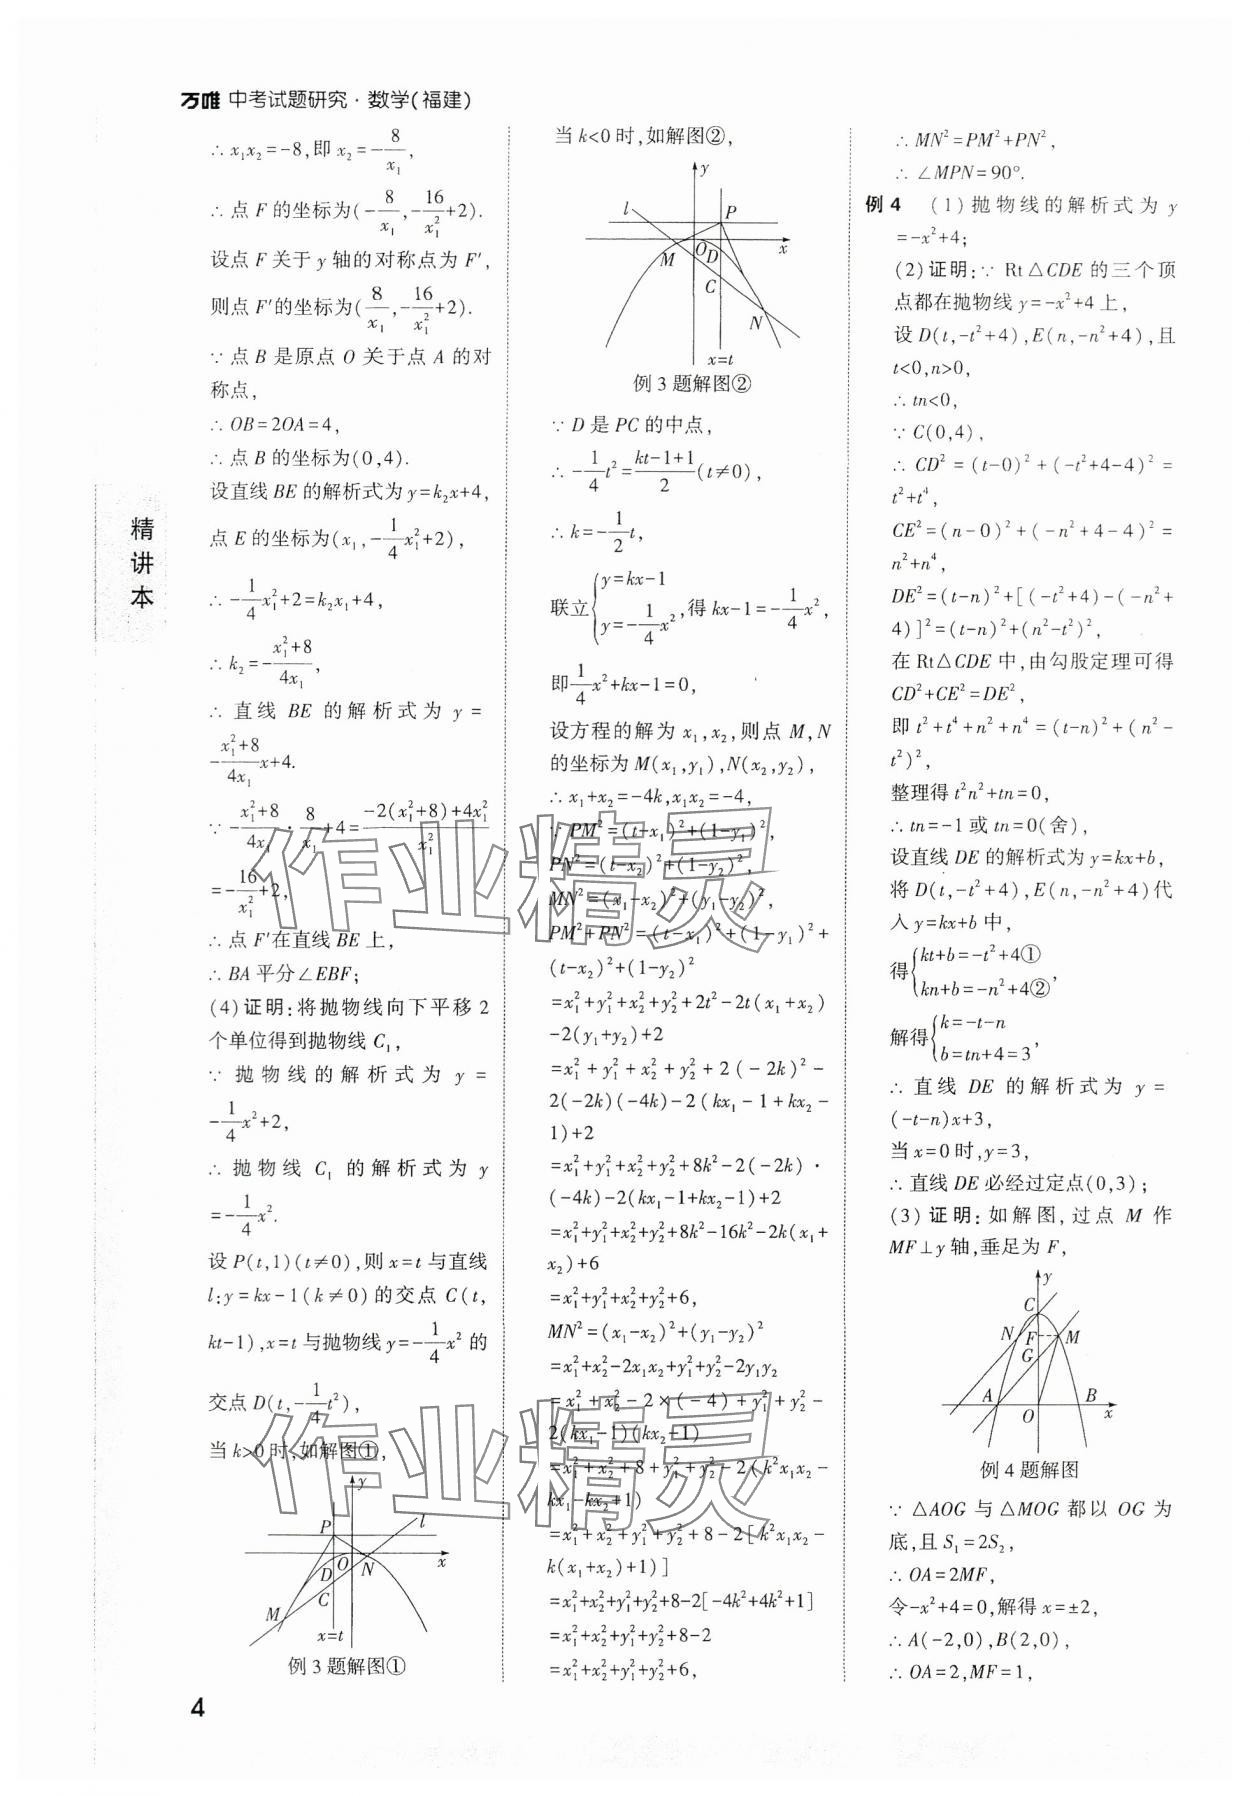 万唯 中考试题研究·数学(福建)
∴x₁x₂=-8,即x₂=-8/x₁,
∴点F的坐标为(-8/x₁,-16/x₁²+2).
设点F关于y轴的对称点为F′,
则点F′的坐标为(8/x₁,-16/x₁²+2).
∵点B是原点O关于点A的对
称点,
∴OB=2OA=4,
∴点B的坐标为(0,4).
设直线BE的解析式为y=k₂x+4,
点E的坐标为(x₁,-1/4x₁²+2),
∴-1/4x₁²+2=k₂x₁+4,
∴k₂=-(x₁²+8)/4x₁,
∴直线BE的解析式为y=
-(x₁²+8)/4x₁ x+4.
∵-(x₁²+8)/4x₁·8/x₁+4=(-2(x₁²+8)+4x₁²)/x₁²
=-16/x₁²+2,
∴点F′在直线BE上,
∴BA平分∠EBF;
(4)证明:将抛物线向下平移2
个单位得到抛物线C₁,
∵抛物线的解析式为y=
-1/4x²+2,
∴抛物线C₁的解析式为y
=-1/4x².
设P(t,1)(t≠0),则x=t与直线
l:y=kx-1(k≠0)的交点C(t,
kt-1),x=t与抛物线y=-1/4x²的
交点D(t,-1/4t²),
当k>0时,如解图①,
y
P
l
O
N
x
D
C
M
x=t
例3题解图①
当k<0时,如解图②,
y
l
P
O
D
x
M
C
N
x=t
例3题解图②
∵D是PC的中点,
∴-1/4t²=(kt-1+1)/2(t≠0),
∴k=-1/2t,
联立{y=kx-1
y=-1/4x²,得kx-1=-1/4x²,
即1/4x²+kx-1=0,
设方程的解为x₁,x₂,则点M,N
的坐标为M(x₁,y₁),N(x₂,y₂),
∴x₁+x₂=-4k,x₁x₂=-4,
∵PM²=(t-x₁)²+(1-y₁)²,
PN²=(t-x₂)²+(1-y₂)²,
MN²=(x₁-x₂)²+(y₁-y₂)²,
PM²+PN²=(t-x₁)²+(1-y₁)²+
(t-x₂)²+(1-y₂)²
=x₁²+y₁²+x₂²+y₂²+2t²-2t(x₁+x₂)
-2(y₁+y₂)+2
=x₁²+y₁²+x₂²+y₂²+2(-2k)²-
2(-2k)(-4k)-2(kx₁-1+kx₂-
1)+2
=x₁²+y₁²+x₂²+y₂²+8k²-2(-2k)·
(-4k)-2(kx₁-1+kx₂-1)+2
=x₁²+y₁²+x₂²+y₂²+8k²-16k²-2k(x₁+
x₂)+6
=x₁²+y₁²+x₂²+y₂²+6,
MN²=(x₁-x₂)²+(y₁-y₂)²
=x₁²+x₂²-2x₁x₂+y₁²+y₂²-2y₁y₂
=x₁²+x₂²-2×(-4)+y₁²+y₂²-
2(kx₁-1)(kx₂-1)
=x₁²+x₂²+8+y₁²+y₂²-2(k²x₁x₂-
kx₁-kx₂+1)
=x₁²+x₂²+y₁²+y₂²+8-2[k²x₁x₂-
k(x₁+x₂)+1)]
=x₁²+x₂²+y₁²+y₂²+8-2[-4k²+4k²+1]
=x₁²+x₂²+y₁²+y₂²+8-2
=x₁²+x₂²+y₁²+y₂²+6,
∴MN²=PM²+PN²,
∴∠MPN=90°.
例4 (1)抛物线的解析式为y
=-x²+4;
(2)证明:∵Rt△CDE的三个顶
点都在抛物线y=-x²+4上,
设D(t,-t²+4),E(n,-n²+4),且
t<0,n>0,
∴tn<0,
∵C(0,4),
∴CD²=(t-0)²+(-t²+4-4)²=
t²+t⁴,
CE²=(n-0)²+(-n²+4-4)²=
n²+n⁴,
DE²=(t-n)²+[(-t²+4)-(-n²+
4)]²=(t-n)²+(n²-t²)²,
在Rt△CDE中,由勾股定理可得
CD²+CE²=DE²,
即t²+t⁴+n²+n⁴=(t-n)²+(n²-
t²)²,
整理得t²n²+tn=0,
∴tn=-1或tn=0(舍),
设直线DE的解析式为y=kx+b,
将D(t,-t²+4),E(n,-n²+4)代
入y=kx+b中,
得{kt+b=-t²+4①
kn+b=-n²+4②,
解得{k=-t-n
b=tn+4=3,
∴直线DE的解析式为y=
(-t-n)x+3,
当x=0时,y=3,
∴直线DE必经过定点(0,3);
(3)证明:如解图,过点M作
MF⊥y轴,垂足为F,
y
C
N
F
M
G
A
B
O
x
例4题解图
∵△AOG与△MOG都以OG为
底,且S₁=2S₂,
∴OA=2MF,
令-x²+4=0,解得x=±2,
∴A(-2,0),B(2,0),
∴OA=2,MF=1,
精讲本
4
作业精灵
作业精灵